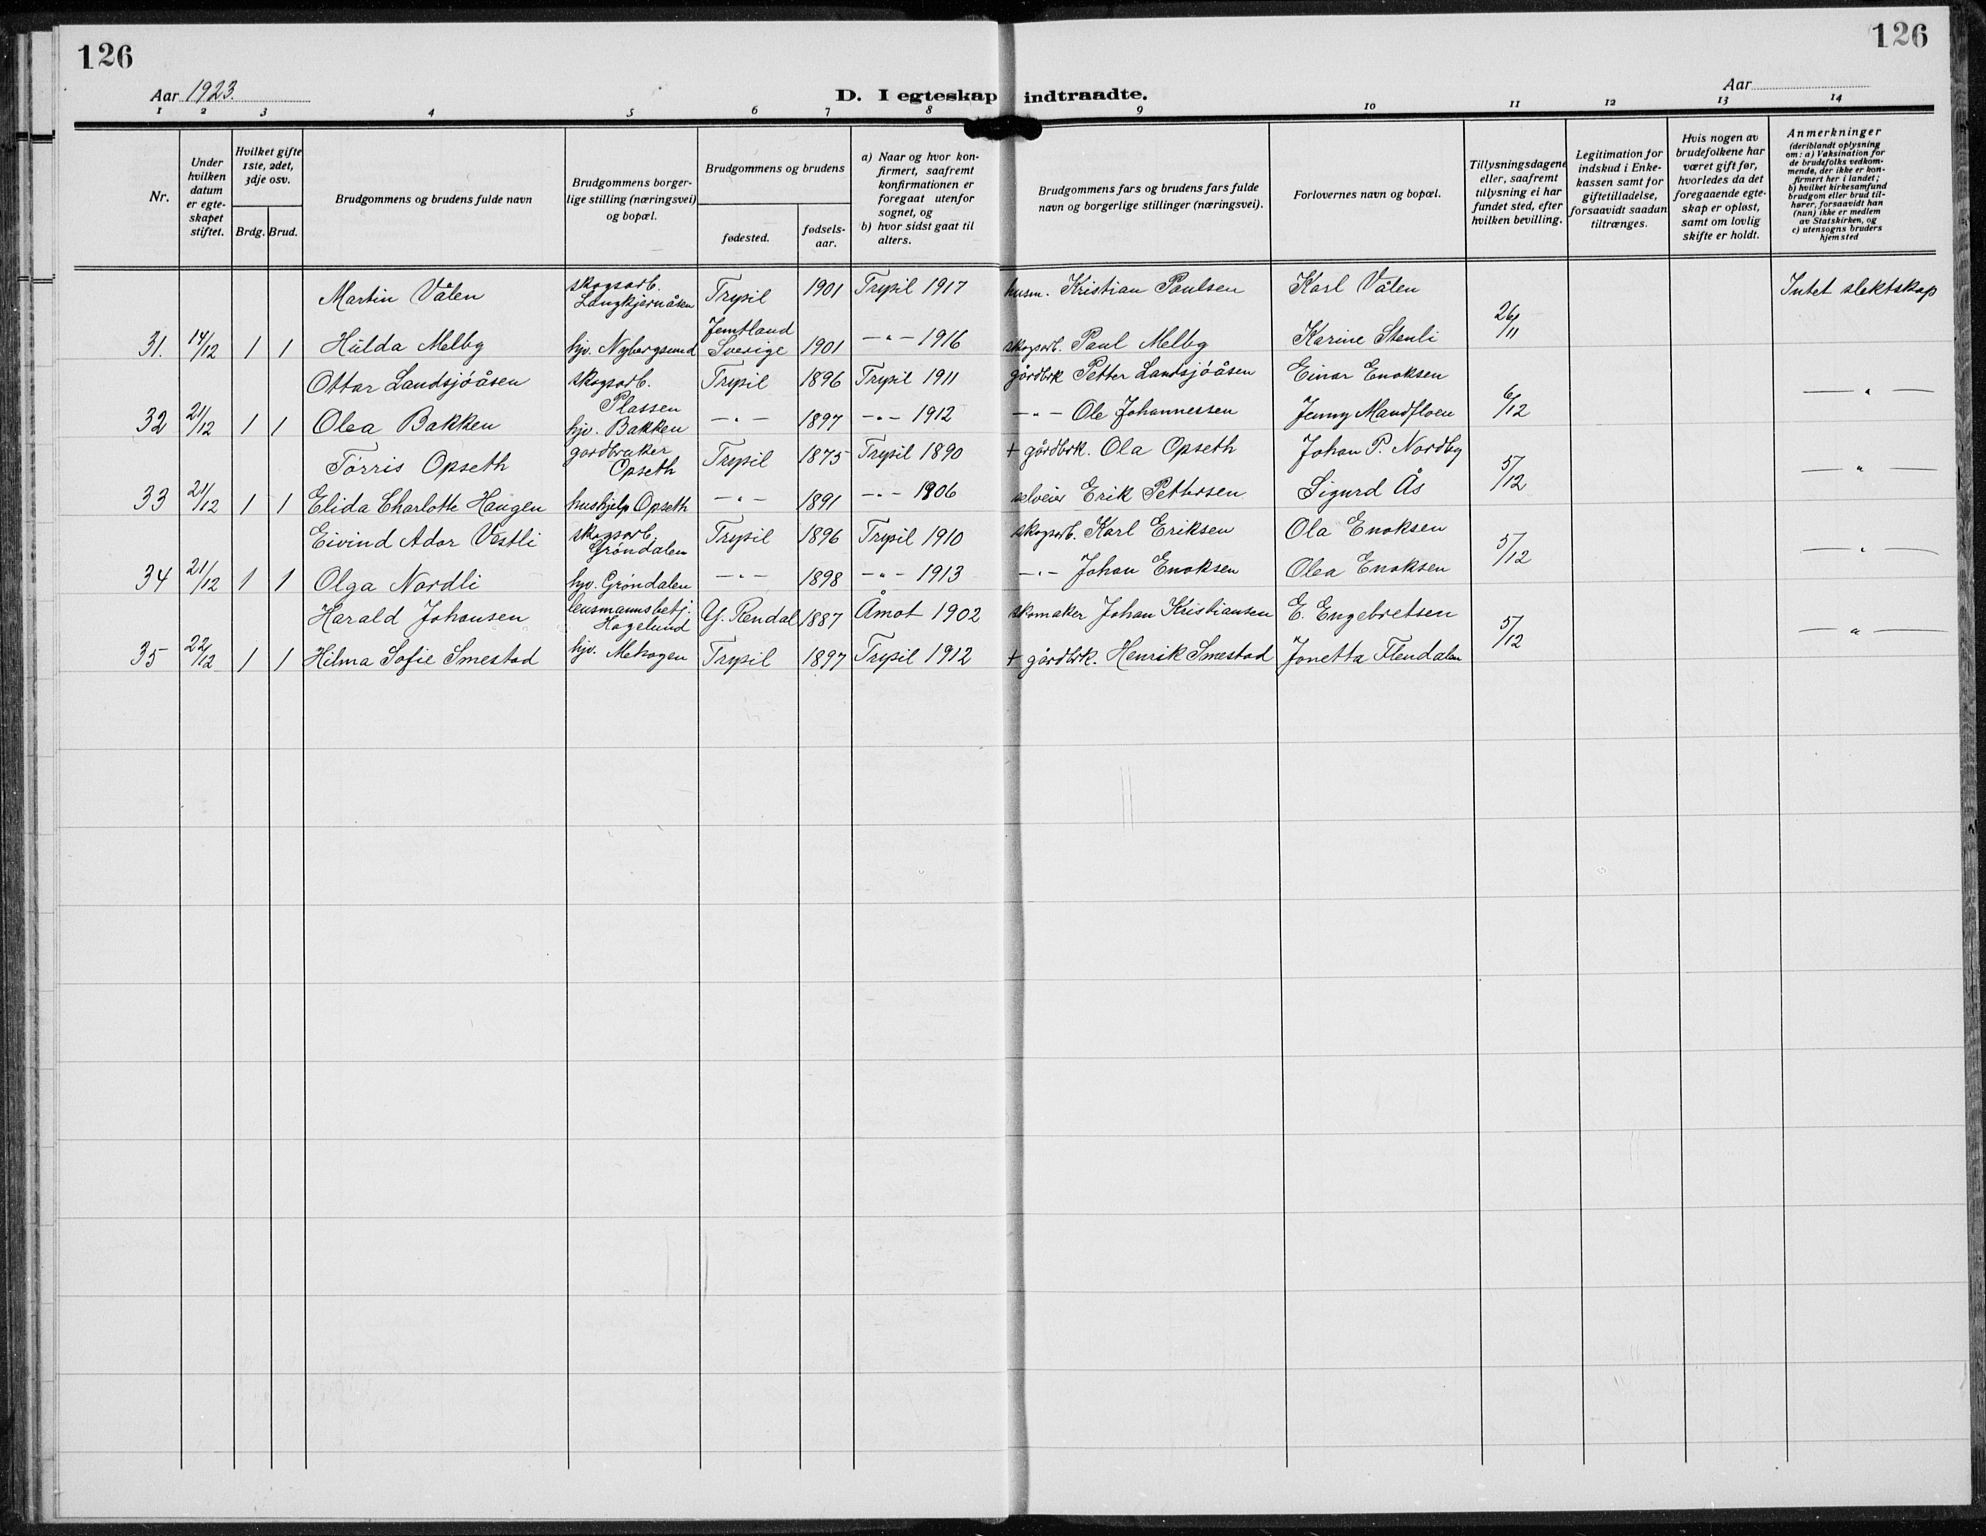 126
126
Aar 1923.
D. I egteskap indtraadte.
Aar
1 2 3 4 5 6 7 8 9 10 11 12 13 14
Nr.
Under hvilken datum er egteskapet stiftet.
Hvilket gifte 1ste, 2det, 3dje osv.
Brdg. Brud.
Brudgommens og brudens fulde navn
Brudgommens borgerlige stilling (næringsvei) og bopæl.
Brudgommens og brudens
fødested.
fødselsaar.
a) Naar og hvor konfirmert, saafremt konfirmationen er foregaat utenfor sognet, og
b) hvor sidst gaat til alters.
Brudgommens fars og brudens fars fulde navn og borgerlige stillinger (næringsvei).
Forlovernes navn og bopæl.
Tillysningsdagene eller, saafremt tillysning ei har fundet sted, efter hvilken bevilling.
Legitimation for indskud i Enkekassen samt for giftetilladelse, forsaavidt saadan tiltrænges.
Hvis nogen av brudefolkene har været gift før, hvorledes da det foregaaende egteskap er opløst, samt om lovlig skifte er holdt.
Anmerkninger
(deriblandt oplysning om: a) Vaksination for de brudefolks vedkommende, der ikke er konfirmert her i landet; b) hvilket kirkesamfund brudgom eller brud tilhører, forsaavidt han (hun) ikke er medlem av Statskirken, og c) utensogns bruders hjemsted
Martin Vålen skogsarb. Langkjernåsen Trysil 1901 Trysil 1917 husm. Kristian Paulsen Karl Vålen Intet slektskap
31. 14/12 1 1 Hulda Melby hjv. Nybergsund Jemtland Sverige 1901 -"- 1916 skogsarb. Paul Melby Karine Stenli 26/11
Ottar Landsjöåsen skogsarb. Plassen Trysil 1896 Trysil 1911 gårdbrk Petter Landsjöåsen Einar Enoksen -"-
32 21/12 1 1 Olea Bakken hjv. Bakken -"- 1897 -"- 1912 -"- Ole Johannessen Jenny Mandfloen 6/12
Tørris Opseth gårdbruker Opseth Trysil 1875 Trysil 1890 + gårdbrk. Ola Opseth Johan P. Nordby -"-
33 21/12 1 1 Elida Charlotte Haugen hushjelp Opseth -"- 1891 -"- 1906 selveier Erik Pettersen Sigurd Ås 5/12
Eivind Ador Vestli skogsarb. Grøndalen Trysil 1896 Trysil 1910 skogsarb. Karl Eriksen Ola Enoksen -"-
34 21/12 1 1 Olga Nordli hjv. Grøndalen -"- 1898 -"- 1913 -"- Johan Enoksen Olea Enoksen 5/12
Harald Johansen lensmannsbetj. Hagelund Y. Rendal 1887 Åmot 1902 skomaker Johan Kristiansen E. Engebretsen -"-
35 22/12 1 1 Hilma Sofie Smestad hjv. Mehogen Trysil 1897 Trysil 1912 + gårdbrk. Henrik Smestad Jonetta Flendalen 5/12